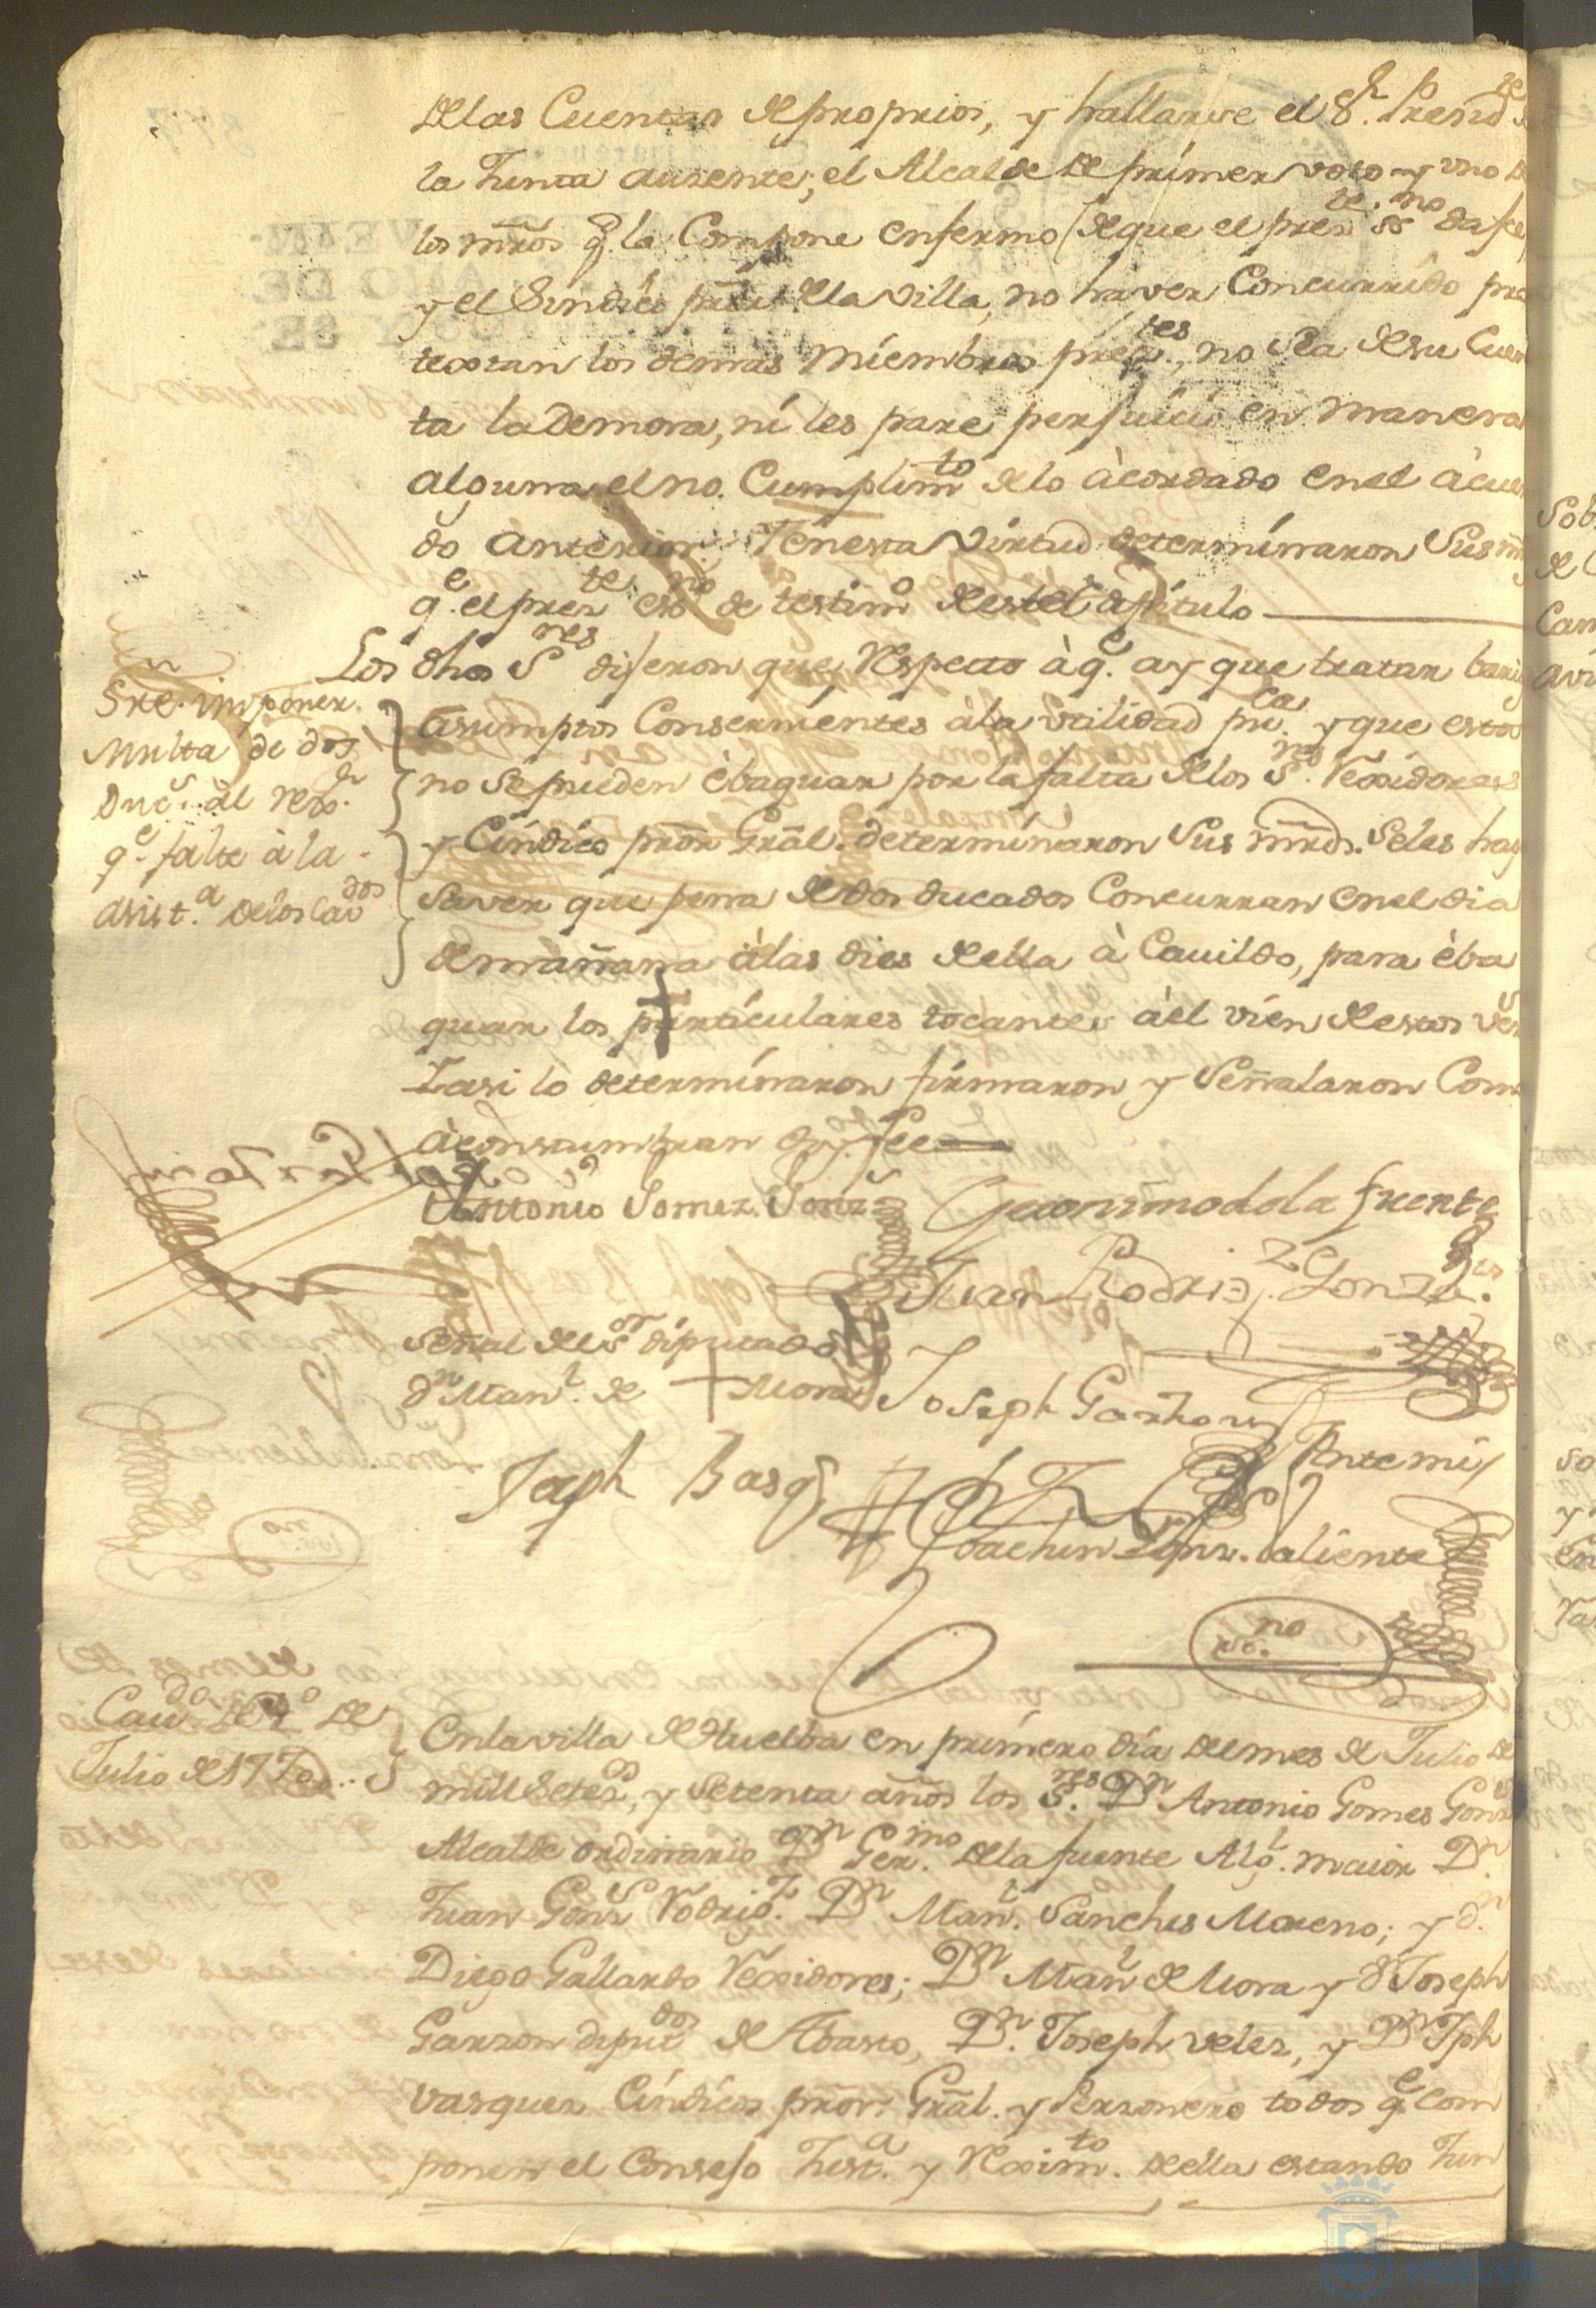 de las Cuentas de proprios, y hallarse el Sr. Presid.te de
la Junta ausente; el Alcalde de primer voto y uno de
los mros q.e la Compone enfermo (de que el pres.te ss.no da fee)
y el Sindico prōr de la villa, no haver Concurrido pro
texstan los demas Miembros pres.tes, no sea de su Cuen
ta la Demora, ni les pare perjuicio en manera
alguna el no Cumplim.to de lo àcordado en el àcuer
do anterior, Y en esta Virtud determinaron Sus m
q.e el pres.te ess.no de testim.o de este Capitulo
Los dhos S.res dijeron que, Respecto à q.e ay que tratar barios
Sre. imponer.
Multa de dos
Duc.s al rex.or
q.e falte à la
asist.a de los Cav.dos
asumptos Consernientes à la Utilidad pu.ca y que estos
no se pueden èbaquar por la falta de los S.res Rexidores
y Cíndico prōr Grāl. determinaron Sus mrds. Se les haga
Saver que pena de dos ducados Concurran en el dia
de mañana à las dies de ella à Cavildo, para èba
quar los particulares tocantes àel vien de estos Ves
Y asi lo determinaron firmaron y Señalaron Como
àcostumbran doy fee
Antonio Gomez Gonz.s
Geronimo de la fuente
Juan Rodrig.z Gonz.les
Señal del S.or diputado
d.n Man.l de + Mora
Joseph Garzon
Joseph Basq.z
Ante mi
Joachin Gonz. Caliente
ss.no
Cav.do de 1.o de
Julio de 1770
En la villa de Huelba en primero dia del mes de Julio de
mill Setes.os y Setenta años los S.res D.n Antonio Gomes Gonz.s
Alcalde ordinario D.n Ger.mo de la fuente Alg.l maior D.n
Juan Gonz.s Rodrig.z D.n Man.l Sanches Moreno; y d.n
Diego Gallardo Rexidores; D.n Man.l de Mora y d.n Joseph
Garzon diput.dos de Abasto, D.n Joseph Veles, y D.n Jph
Vasques Cíndicos prōr. Grāl. y Personero todos q.e Com
ponen el Consejo Just.a y Reximi.to de ella estando Jun
HUELVA